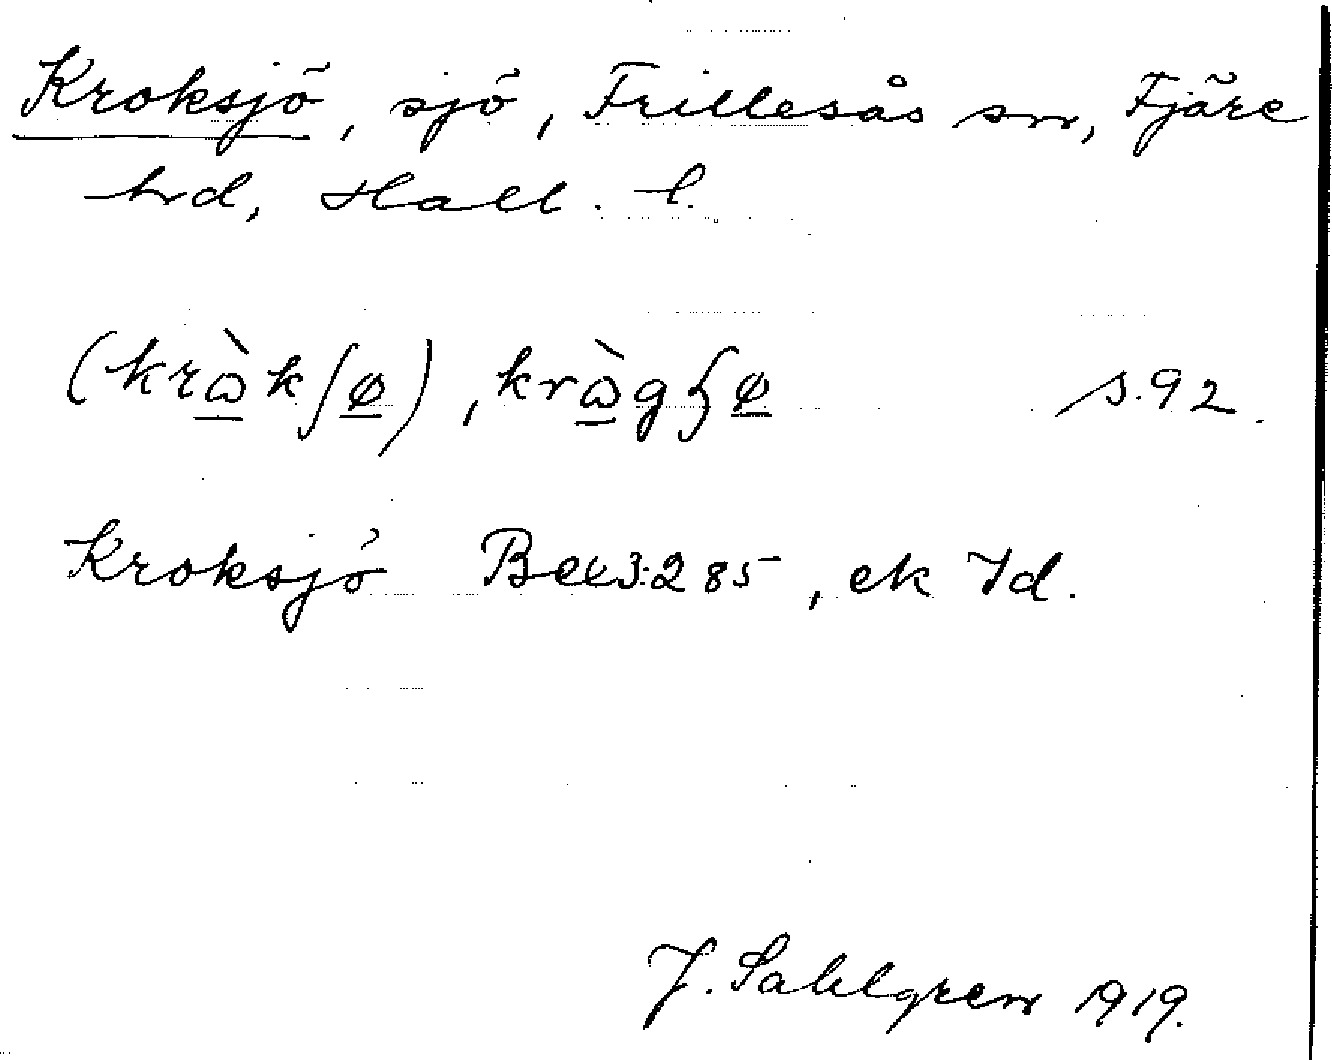 Kroksjö, sjö, Frillesås sn, Fjäre
hrd, Hall. l.
(krὼkʃφ), krὼgʒφ s. 92.
Kroksjö Bexell 3:285, ek Id.
J. Sahlgren 1919.